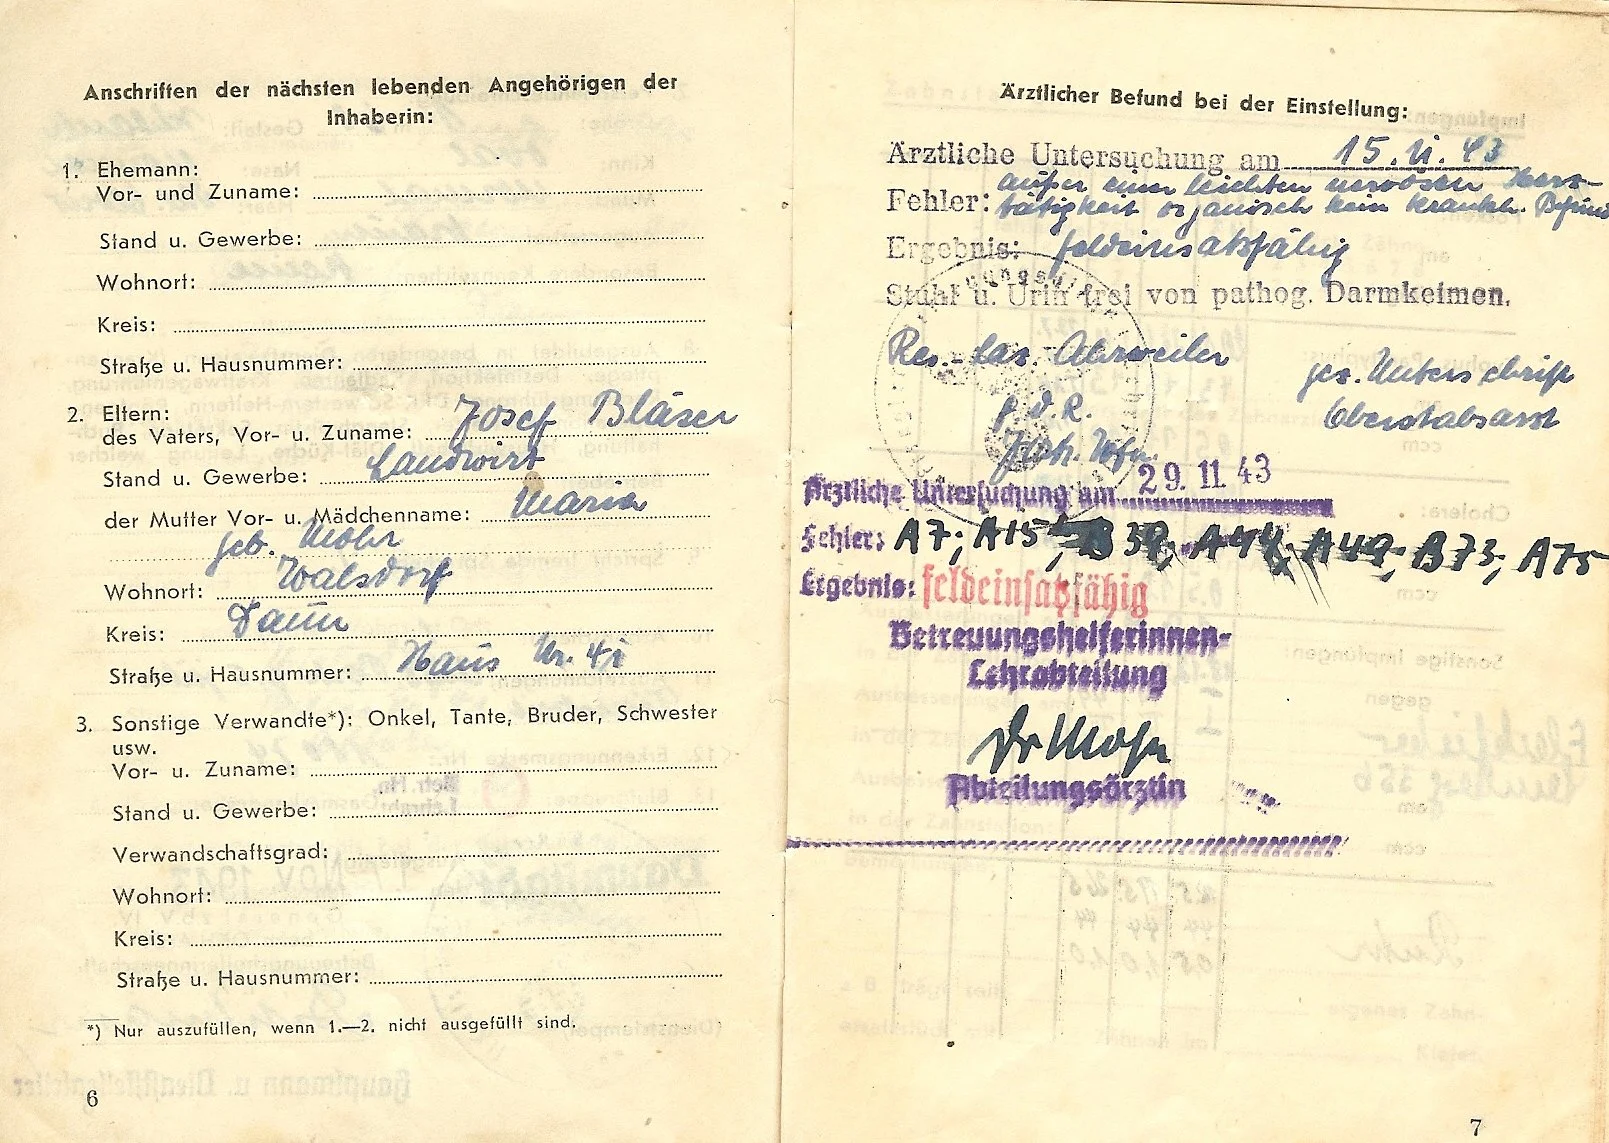 Anschriften der nächsten lebenden Angehörigen der
Inhaberin:
1. Ehemann:
Vor- und Zuname:
Stand u. Gewerbe:
Wohnort:
Kreis:
Straße u. Hausnummer:
2. Eltern:
des Vaters, Vor- u. Zuname: Josef Bläser
Stand u. Gewerbe: Landwirt
der Mutter Vor- u. Mädchenname: Maria
geb. Mohr
Wohnort: Walsdorf
Kreis: Daun
Straße u. Hausnummer: Haus Nr. 41
3. Sonstige Verwandte*): Onkel, Tante, Bruder, Schwester
usw.
Vor- u. Zuname:
Stand u. Gewerbe:
Verwandschaftsgrad:
Wohnort:
Kreis:
Straße u. Hausnummer:
*) Nur auszufüllen, wenn 1.—2. nicht ausgefüllt sind.
6
Ärztlicher Befund bei der Einstellung:
Ärztliche Untersuchung am 15. 11. 43
außer einer leichten nervösen Herz-
Fehler: tätigkeit organisch kein krankh. Befund
Ergebnis: feldeinsatzfähig
Stuhl u. Urin frei von pathog. Darmkeimen.
Res.-Laz. Ahrweiler
gez. Unterschrift
F. d. R.
Oberstabsarzt
Ärztliche Untersuchung am 29. 11. 43
Fehler: A7; A15; B39, A44, A49; B73; A75
Ergebnis: feldeinsatzfähig
Betreuungshelferinnen-
Lehrabteilung
Dr
Abteilungsärztin
7